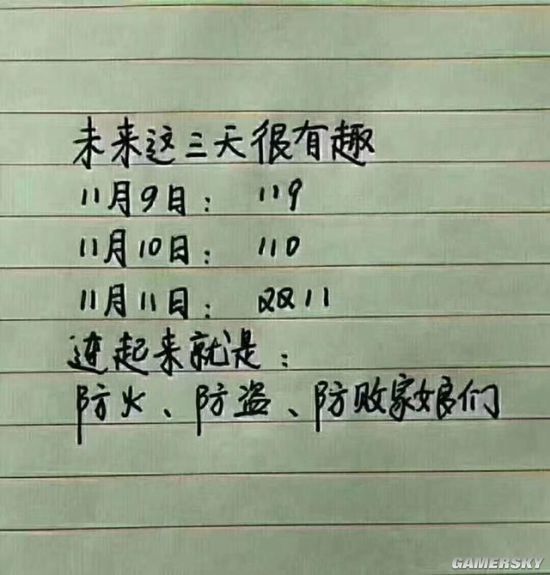 未来这三天很有趣
11月9日： 119
11月10日： 110
11月11日： 双11
连起来就是：
防火、防盗、防败家娘们
GAMERSKY